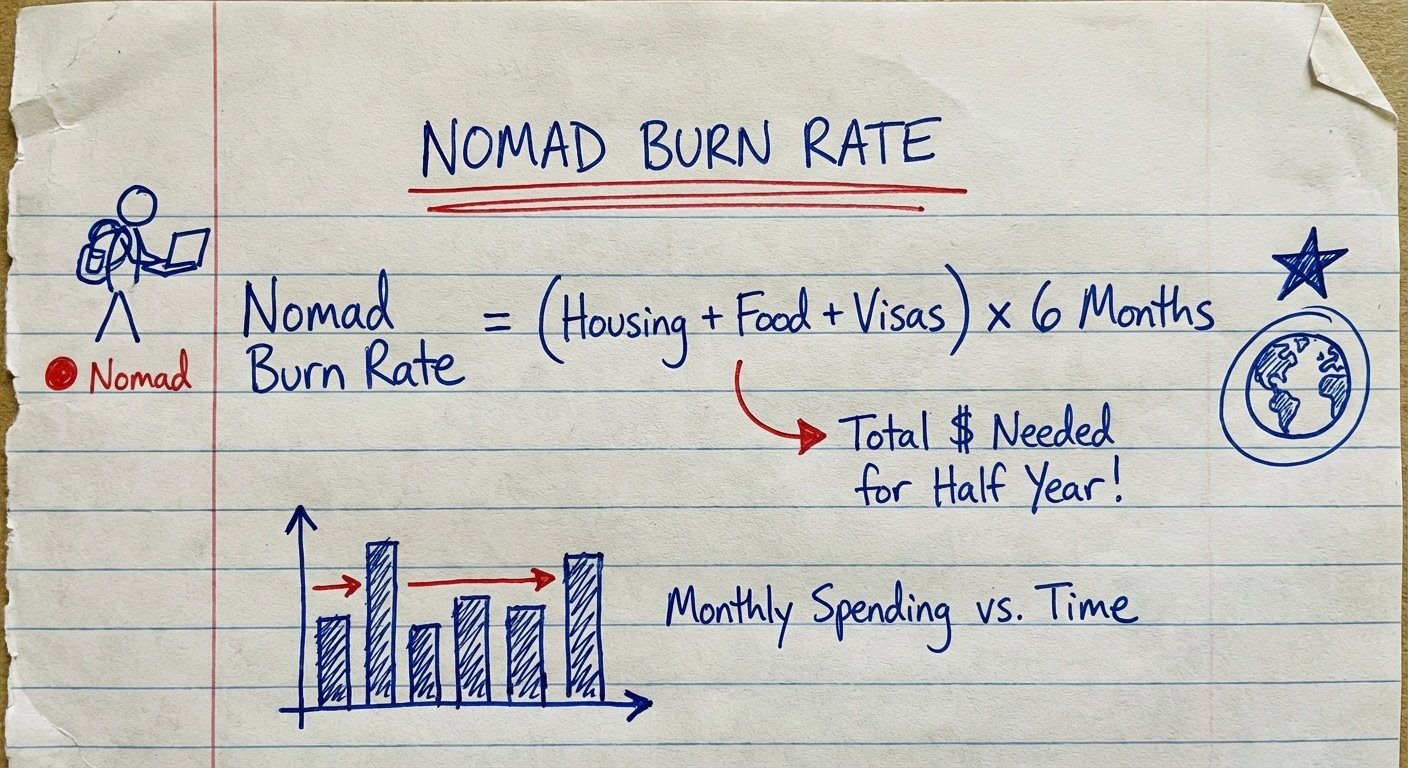 NOMAD BURN RATE
Nomad
Burn Rate
= (Housing + Food + Visas) x 6 Months
Nomad
Total $ Needed
for Half Year!
Monthly Spending vs. Time